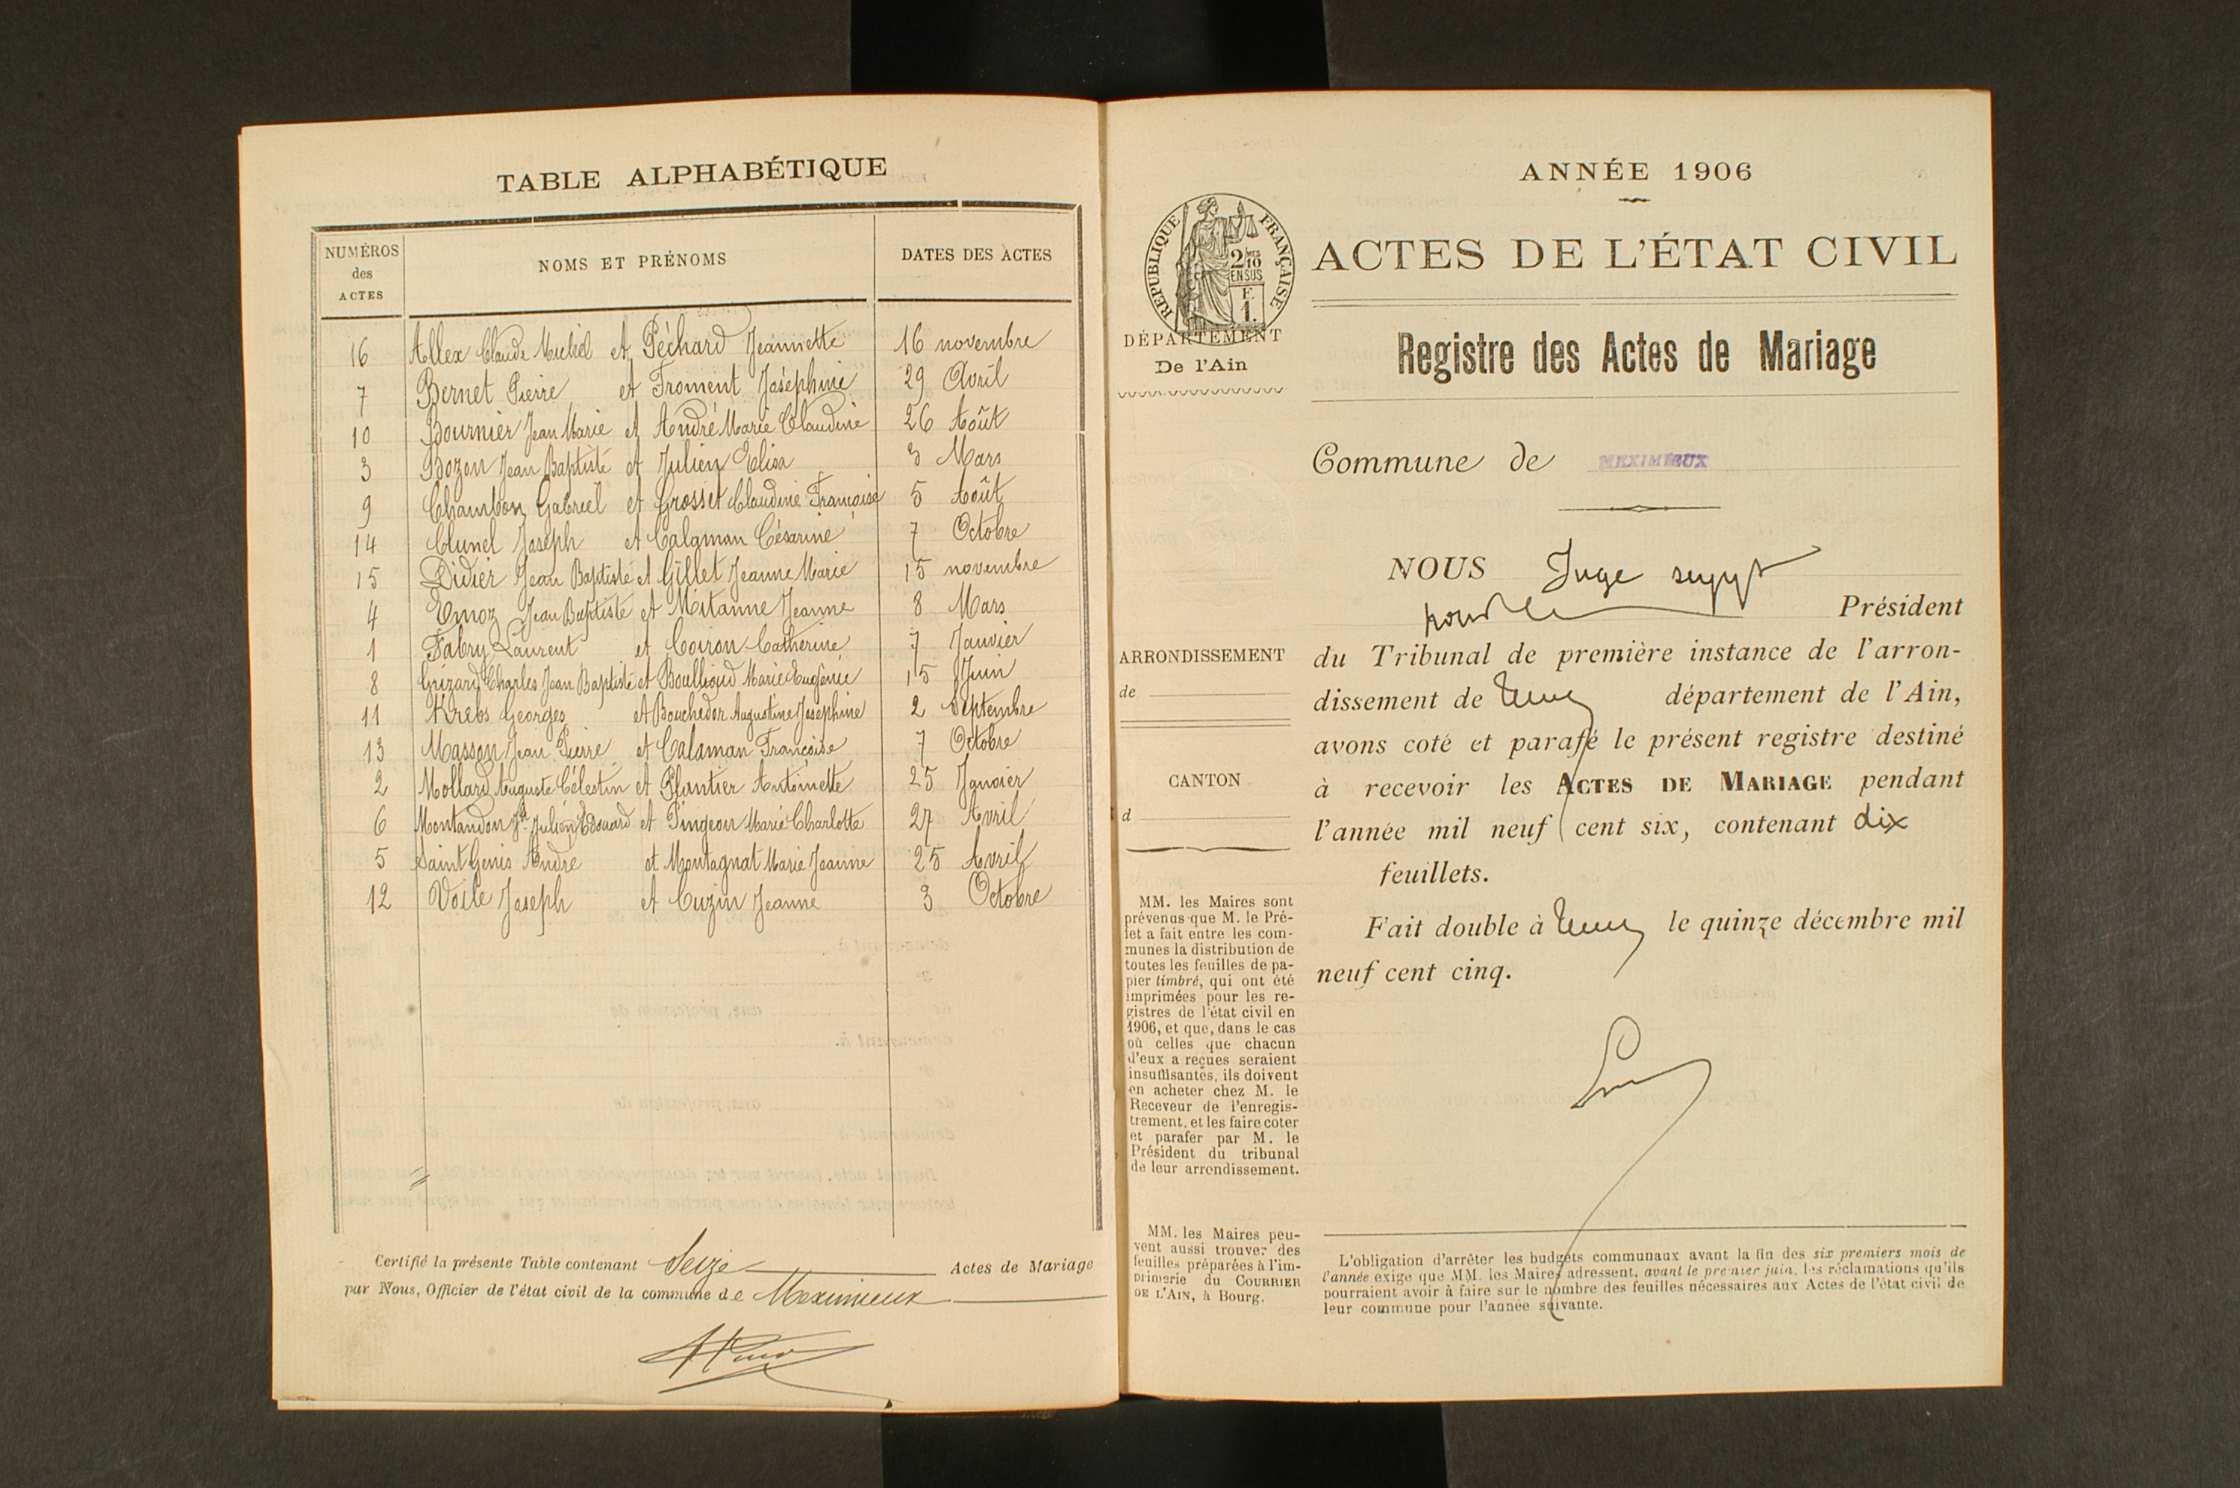 TABLE ALPHABÉTIQUE
NUMÉROS des ACTES
NOMS ET PRÉNOMS
DATES DES ACTES
16 Allex Claude Michel et Péchard Jeannette 16 novembre
7 Bernet Pierre et Froment Joséphine 29 Avril
10 Bournier Jean Marie et André Marie Claudine 26 Août
3 Bozon Jean Baptiste et Julien Elisa 3 Mars
9 Chambon Gabriel et Grosset Claudine Françoise 5 Août
14 Clunel Joseph et Calaman Césarine 7 Octobre
15 Didier Jean Baptiste et Gillet Jeanne Marie 15 novembre
4 Emoz Jean Baptiste et Mitanne Jeanne 8 Mars
1 Fabry Laurent et Coiron Catherine 7 Janvier
8 Grizard Charles Jean Baptiste et Boullioud Marie Eugénie 15 Juin
11 Krebs Georges et Bouchedor Augustine Joséphine 2 Septembre
13 Masson Jean Pierre et Calaman Françoise 7 Octobre
2 Mollard Auguste Célestin et Plantier Antoinette 25 Janvier
6 Montandon Jh Julien Edouard et Pingeon Marie Charlotte 27 Avril
5 Saint Genis André et Montagnat Marie Jeanne 25 Avril
12 Voile Joseph et Cuzin Jeanne 3 Octobre
Certifié la présente Table contenant Seize Actes de Mariage
par Nous, Officier de l'état civil de la commune de Meximieux
ANNÉE 1906
RÉPUBLIQUE FRANÇAISE
2/10 EN SUS
F. 1.
DÉPARTEMENT
De l'Ain
ACTES DE L'ÉTAT CIVIL
Registre des Actes de Mariage
Commune de MEXIMIEUX
NOUS Juge suppt
pour le Président
du Tribunal de première instance de l'arron-
dissement de département de l'Ain,
avons coté et parafé le présent registre destiné
à recevoir les ACTES DE MARIAGE pendant
l'année mil neuf cent six, contenant dix
feuillets.
Fait double à le quinze décembre mil
neuf cent cinq.
ARRONDISSEMENT
de
CANTON
d
MM. les Maires sont
prévenus que M. le Pré-
fet a fait entre les com-
munes la distribution de
toutes les feuilles de pa-
pier timbré, qui ont été
imprimées pour les re-
gistres de l'état civil en
1906, et que, dans le cas
où celles que chacun
d'eux a reçues seraient
insuffisantes, ils doivent
en acheter chez M. le
Receveur de l'enregis-
trement, et les faire coter
et parafer par M. le
Président du tribunal
de leur arrondissement.
MM. les Maires peu-
vent aussi trouver des
feuilles préparées à l'im-
primerie du COURRIER
DE L'AIN, à Bourg.
L'obligation d'arrêter les budgets communaux avant la fin des six premiers mois de
l'année exige que MM. les Maires adressent, avant le premier juin, les réclamations qu'ils
pourraient avoir à faire sur le nombre des feuilles nécessaires aux Actes de l'état civil de
leur commune pour l'année suivante.